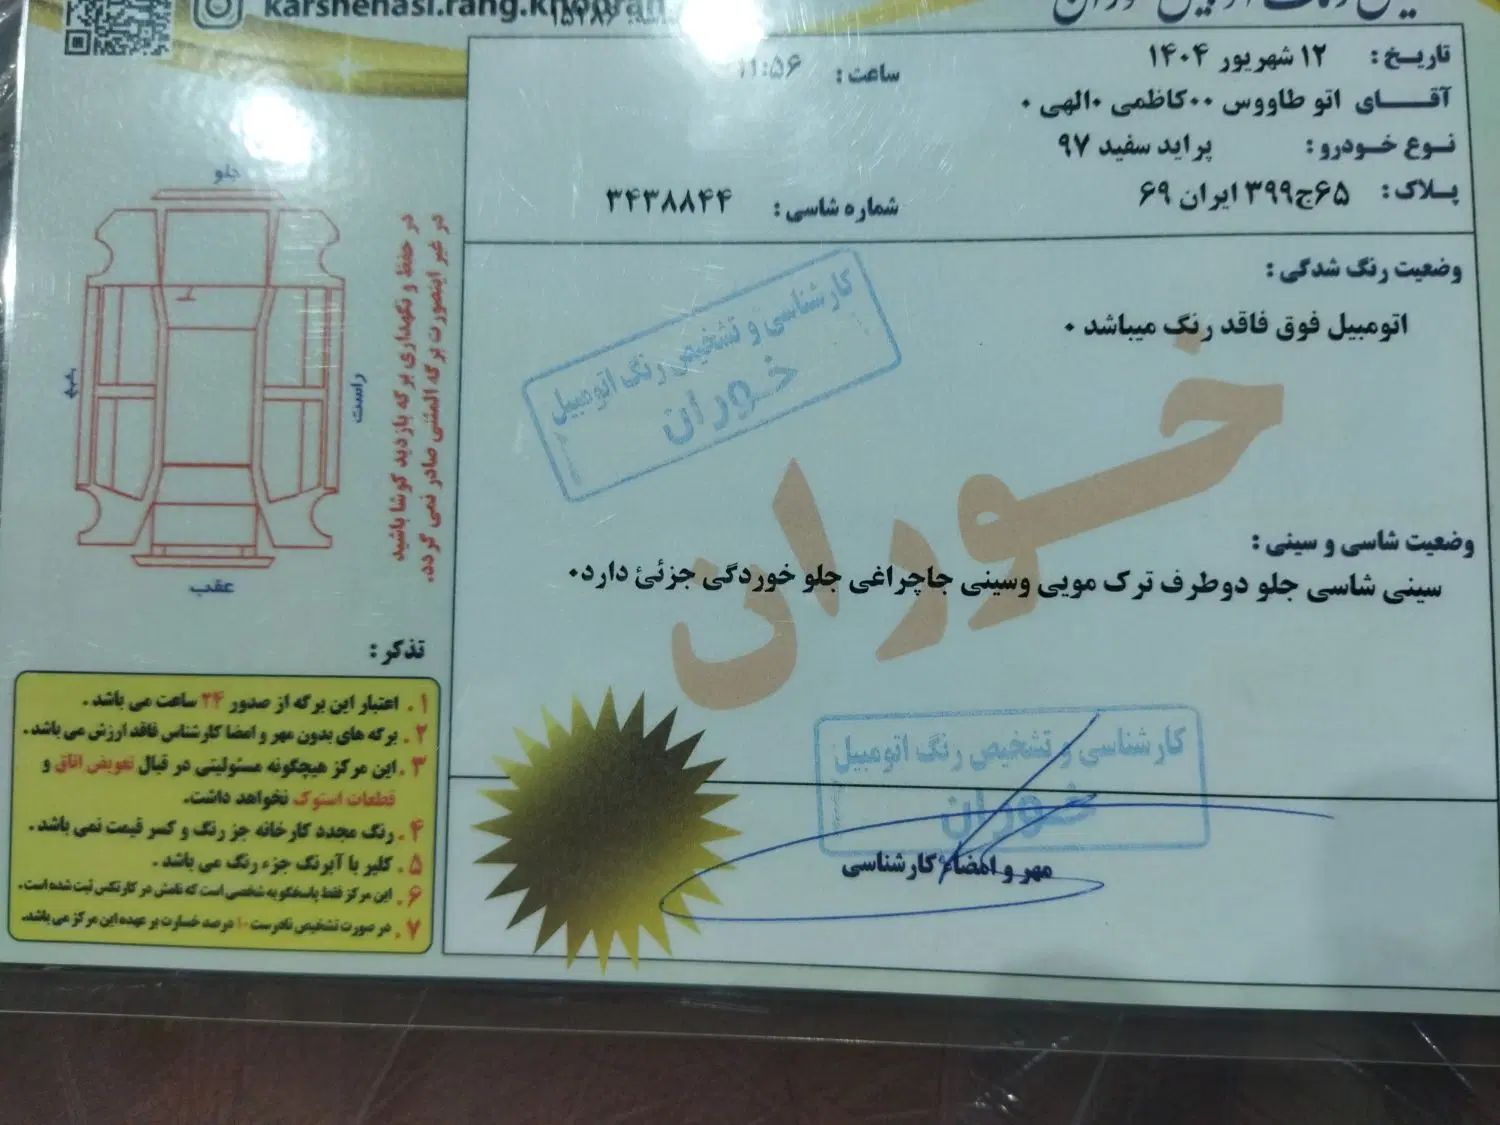 karshenasi.rang.khooran
۱۵۲۸۶
تاریخ : ۱۲ شهریور ۱۴۰۴
ساعت : ۱۱:۵۶
آقای اتو طاووس ۰۰کاظمی ۰الهی ۰
نوع خودرو : پراید سفید ۹۷
پلاک : ۶۵ج۳۹۹ ایران ۶۹
شماره شاسی : ۳۴۳۸۸۴۴
وضعیت رنگ شدگی :
اتومبیل فوق فاقد رنگ میباشد ۰
کارشناسی و تشخیص رنگ اتومبیل
خوران
خوران
وضعیت شاسی و سینی :
سینی شاسی جلو دوطرف ترک مویی وسینی جاچراغی جلو خوردگی جزئئ دارد۰
کارشناسی و تشخیص رنگ اتومبیل
خوران
مهر و امضاء کارشناسی
جلو
راست
چپ
عقب
در حفظ و نگهداری برگه بازدید کوشا باشید
در غیر اینصورت برگه المثنی صادر نمی گردد.
تذکر :
۱. اعتبار این برگه از صدور ۲۴ ساعت می باشد .
۲. برگه های بدون مهر و امضا کارشناس فاقد ارزش می باشد .
۳. این مرکز هیچگونه مسئولیتی در قبال تعویض اتاق و
قطعات استوک نخواهد داشت.
۴. رنگ مجدد کارخانه جز رنگ و کسر قیمت نمی باشد .
۵. کلیر یا آبرنگ جزء رنگ می باشد .
۶. این مرکز فقط پاسخگو به شخصی است که نامش در کارتکس ثبت شده است .
۷. در صورت تشخیص نادرست ۱۰ درصد خسارت بر عهده این مرکز می باشد.